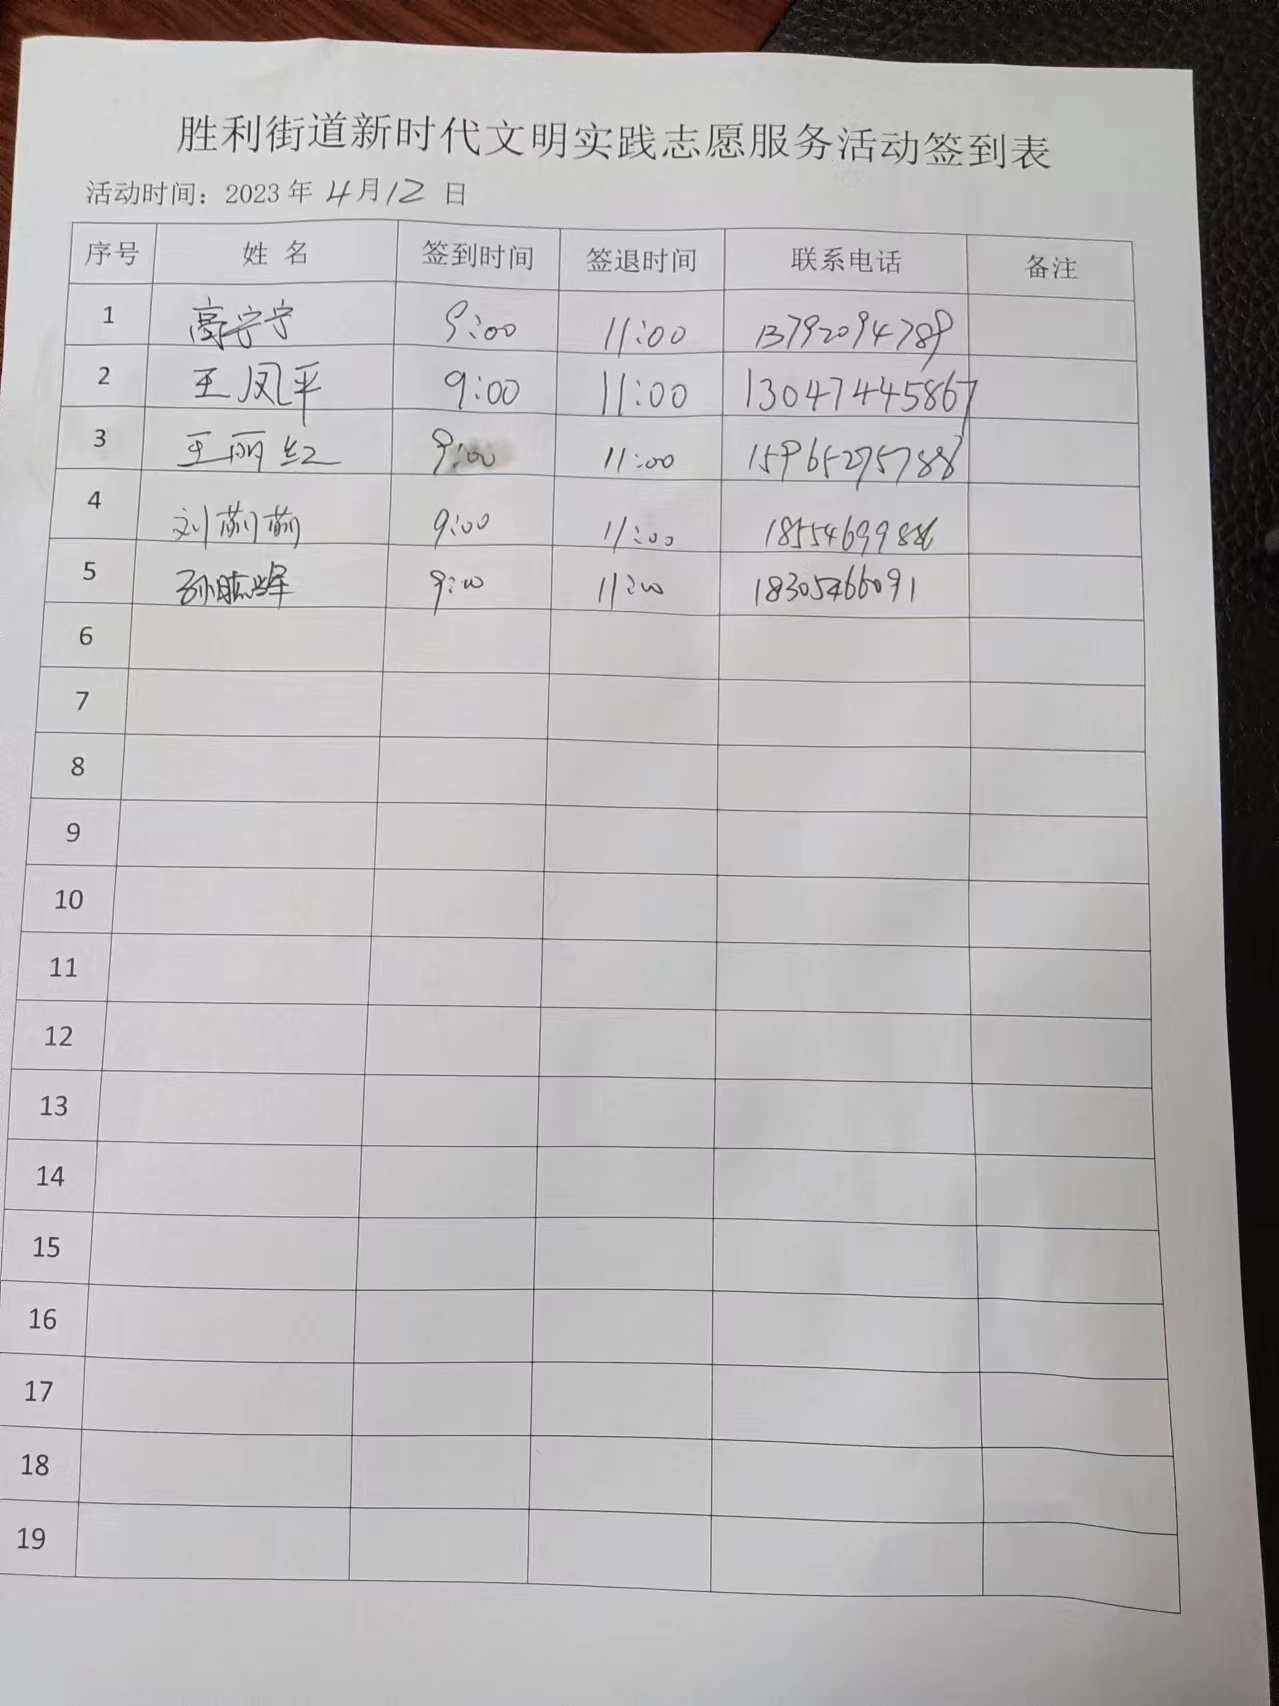 胜利街道新时代文明实践志愿服务活动签到表
活动时间：2023年 4月12 日
序号 姓 名 签到时间 签退时间 联系电话 备注
1 高宁宁 9:00 11:00 13792094789
2 王凤平 9:00 11:00 13047445867
3 王丽红 9:00 11:00 15965275788
4 刘萌萌 9:00 11:00
5 9:00 11:00 18305466091
6
7
8
9
10
11
12
13
14
15
16
17
18
19